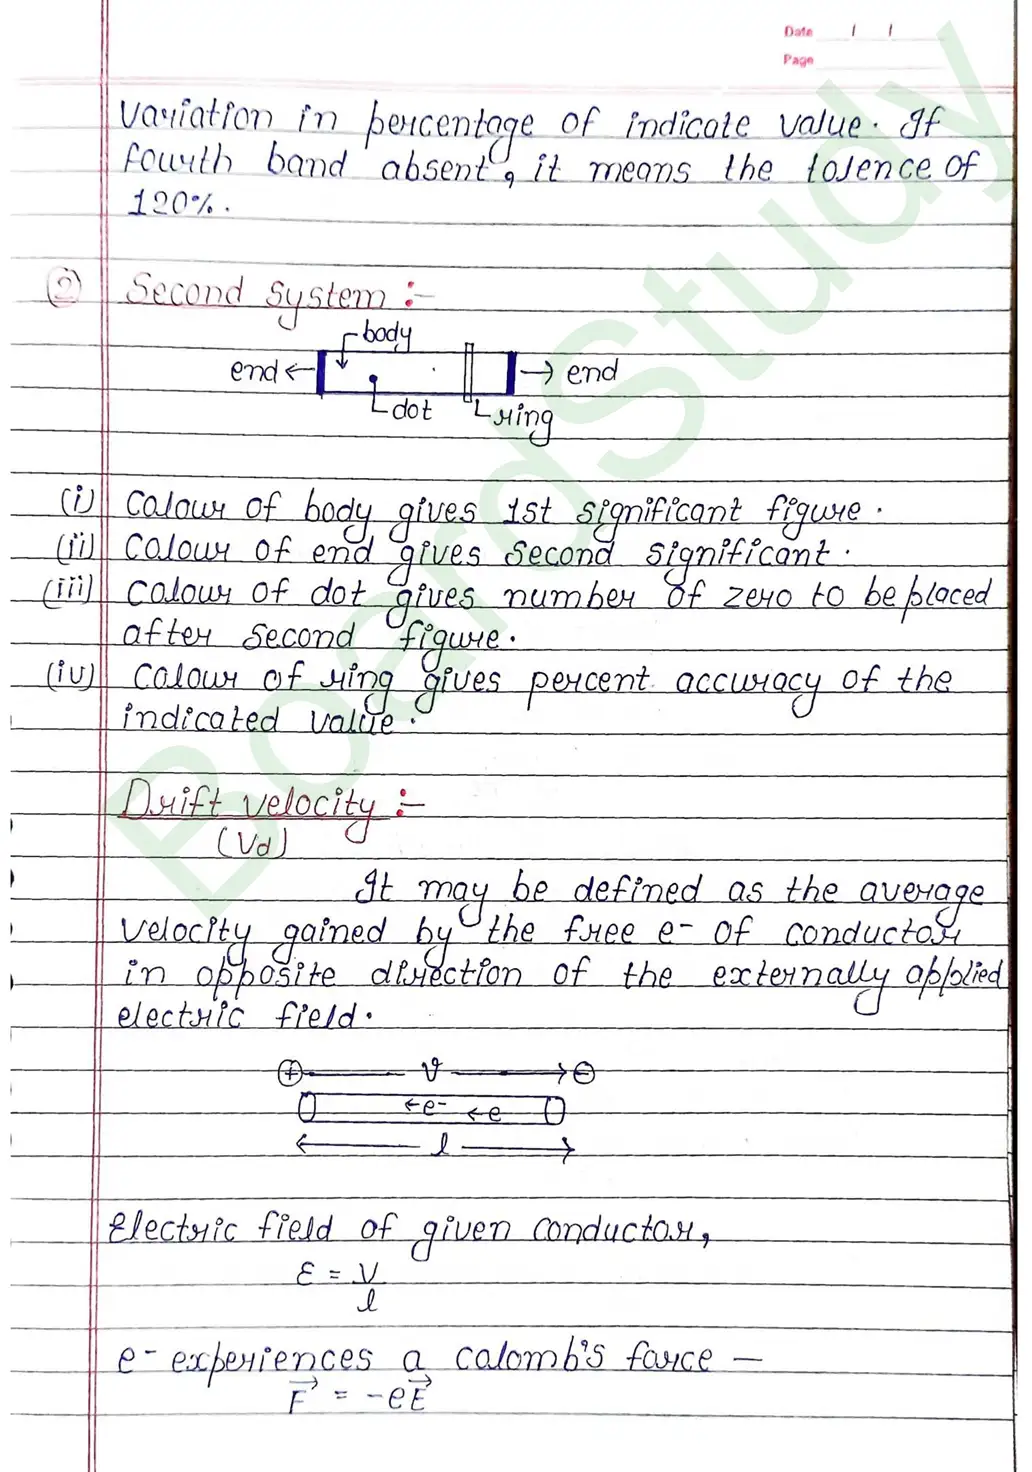 Date / /
Page
Variation in percentage of indicate value. If
fourth band absent, it means the tolence of
120%.
② Second system :-
body
end ← → end
dot ring
(i) Colour of body gives 1st significant figure.
(ii) Colour of end gives second significant.
(iii) Colour of dot gives number of zero to be placed
after second figure.
(iv) Colour of ring gives percent accuracy of the
indicated value.
Drift velocity :-
(Vd)
It may be defined as the average
velocity gained by the free e- of conductor
in opposite direction of the externally applied
electric field.
⊕ V → ⊖
←e- ←e
← l →
Electric field of given conductor,
ε = V
l
e- experiences a calomb's force —
F⃗ = -eE⃗
BoardStudy